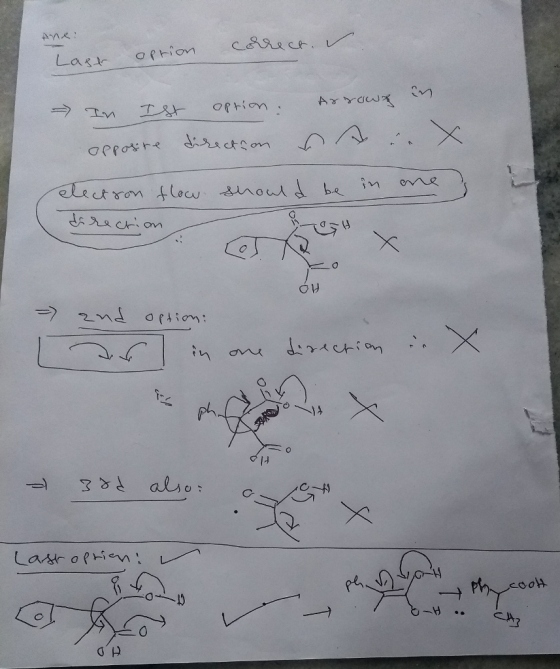 Ans:
Last option correct. ✓
⇒ In Ist option: Arrows in
opposite direction ∴ X
electron flow should be in one
direction
∵
O
O-H
X
O
OH
⇒ 2nd option:
in one direction ∴ X
O
ph
O
H
X
OH
O
⇒ 3rd also:
O
O-H
X
Last option: ✓
O
O-H
O
OH
→
ph
O-H
O-H
→
ph
COOH
CH3